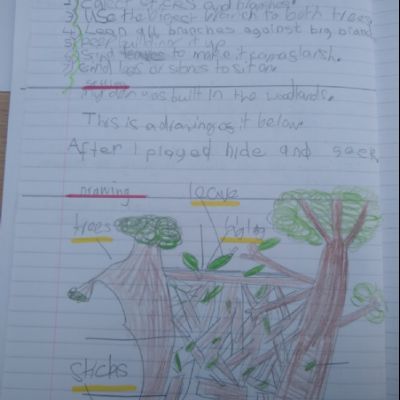 1) Collect sticks and branches.
2) Use the bigest branch to both trees
4) Lean all branches against big branch
5) Keep building it up
6) to make it camouflarsh.
7) find logs or stones to sit on.
setting
my den was built in the woodlands.
This is a drawing of it below
After I played hide and seek
Drawing
leave
trees
sticks